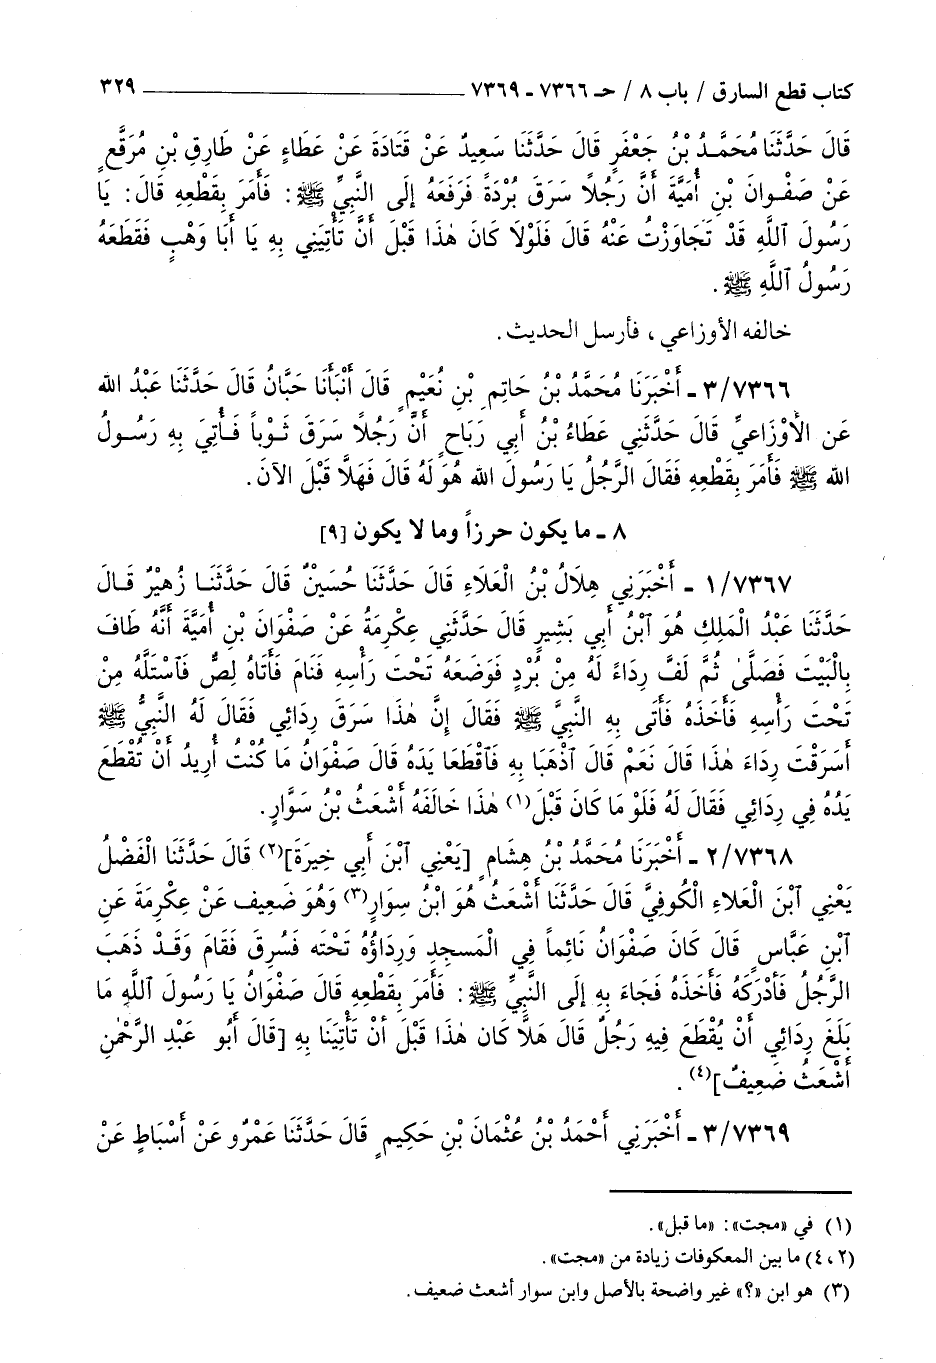 كتاب قطع السارق / باب ٨ / حـ ٧٣٦٦ - ٧٣٦٩ ٣٢٩
قَالَ حَدَّثَنَا مُحَمَّدُ بْنُ جَعْفَرٍ قَالَ حَدَّثَنَا سَعِيدٌ عَنْ قَتَادَةَ عَنْ عَطَاءٍ عَنْ طَارِقِ بْنِ مُرَقَّعٍ
عَنْ صَفْوانَ بْنِ أُمَيَّةَ أَنَّ رَجُلاً سَرَقَ بُرْدَةً فَرَفَعَهُ إلَى النَّبِيِّ ﷺ: فَأَمَرَ بِقَطْعِهِ قَالَ: يَا
رَسُولَ ٱللَّهِ قَدْ تَجَاوَزْتُ عَنْهُ قَالَ فَلَوْلَا كَانَ هٰذَا قَبْلَ أَنَّ تَأْتِيَنِي بِهِ يَا أَبَا وَهْبٍ فَقَطَعَهُ
رَسُولُ ٱللَّهِ ﷺ.
خالفه الأوزاعي، فأرسل الحديث.
٣/٧٣٦٦ - أَخْبَرَنَا مُحَمَّدُ بْنُ حَاتِمِ بْنِ نُعَيْمٍ قَالَ أَنْبَأَنَا حَبَّانُ قَالَ حَدَّثَنَا عَبْدُ الله
عَنِ الأَوْزَاعيِّ قَالَ حَدَّثَنِي عَطَاءُ بْنُ أَبِي رَبَاحٍ أَنَّ رَجُلاً سَرَقَ ثَوْباً فَأُتِيَ بِهِ رَسُولُ
الله ﷺ فَأَمَرَ بِقَطْعِهِ فَقَالَ الرَّجُلُ يَا رَسُولَ الله هُوَ لَهُ قَالَ فَهَلَّا قَبْلَ الآنَ.
٨ - ما يكون حرزاً وما لا يكون [٩]
١/٧٣٦٧ - أَخْبَرَنِي هِلَالُ بْنُ الْعَلَاءِ قَالَ حَدَّثَنَا حُسَيْنٌ قَالَ حَدَّثَنَا زُهَيْرٌ قَالَ
حَدَّثَنَا عَبْدُ الْمَلِكِ هُوَ ٱبْنُ أَبِي بَشِيرٍ قَالَ حَدَّثَنِي عِكْرِمَةُ عَنْ صَفْوَانَ بْنِ أُمَيَّةَ أَنَّهُ طَافَ
بِالْبَيْتَ فَصَلَّىٰ ثُمَّ لَفَّ رِدَاءً لَهُ مِنْ بُرْدٍ فَوَضَعَهُ تَحْتَ رَأْسِهِ فَنَامَ فَأَتَاهُ لِصٌّ فَٱسْتَلَّهُ مِنْ
تَحْتَ رَأْسِهِ فَأَخَذَهُ فَأَتَى بِهِ النَّبِيَّ ﷺ فَقَالَ إنَّ هٰذَا سَرَقَ رِدَائِي فَقَالَ لَهُ النَّبِيُّ ﷺ
أَسَرَقْتَ رِدَاءَ هٰذَا قَالَ نَعَمْ قَالَ ٱذْهَبَا بِهِ فَٱقْطَعَا يَدَهُ قَالَ صَفْوَانُ مَا كُنْتُ أُرِيدُ أَنْ تُقْطَعَ
يَدُهُ فِي رِدَائِي فَقَالَ لَهُ فَلَوْ مَا كَانَ قَبْلَ(١) هٰذَا خَالَفَهُ أَشْعَثُ بْنُ سَوَّارٍ.
٢/٧٣٦٨ - أَخْبَرَنَا مُحَمَّدُ بْنُ هِشَامٍ [يَعْنِي ٱبْنَ أَبي خِيرَةَ](٢) قَالَ حَدَّثَنَا الْفَضْلُ
يَعْنِي ٱبْنَ الْعَلَاءِ الْكُوفِيَّ قَالَ حَدَّثَنَا أَشْعَثُ هُوَ ابْنُ سِوَارٍ(٣) وَهُوَ ضَعِيف عَنْ عِكْرِمَةَ عَنِ
ٱبْنِ عَبَّاسٍ قَالَ كَانَ صَفْوَانُ نَائِماً فِي الْمَسجِدِ وَرِدَاؤُهُ تَحْتَه فَسُرِقَ فَقَامَ وَقَدْ ذَهَبَ
الرَّجُلُ فَأَدْرَكَهُ فَأَخَذَهُ فَجَاءَ بِهِ إلَى النَّبِيِّ ﷺ: فَأَمَرَ بِقَطْعِهِ قَالَ صَفْوَانُ يَا رَسُولَ ٱللَّهِ مَا
بَلَغَ رِدَائِي أَنْ يُقْطَعَ فِيهِ رَجُلٌ قَالَ هَلَّا كَان هٰذَا قَبْلَ أَنْ تَأْتِيَنَا بِهِ [قَالَ أَبُو عَبْدِ الرَّحْمٰنِ
أَشْعَثُ ضَعِيفٌ](٤).
٣/٧٣٦٩ - أَخْبَرَنِي أَحْمَدُ بْنُ عُثْمَانَ بْنِ حَكِيمٍ قَالَ حَدَّثَنَا عَمْرُو عَنْ أَسْبَاطٍ عَنْ
(١) في «مجت»: «ما قبل».
(٢، ٤) ما بين المعكوفات زيادة من «مجت».
(٣) هو ابن «؟» غير واضحة بالأصل وابن سوار أشعث ضعيف.